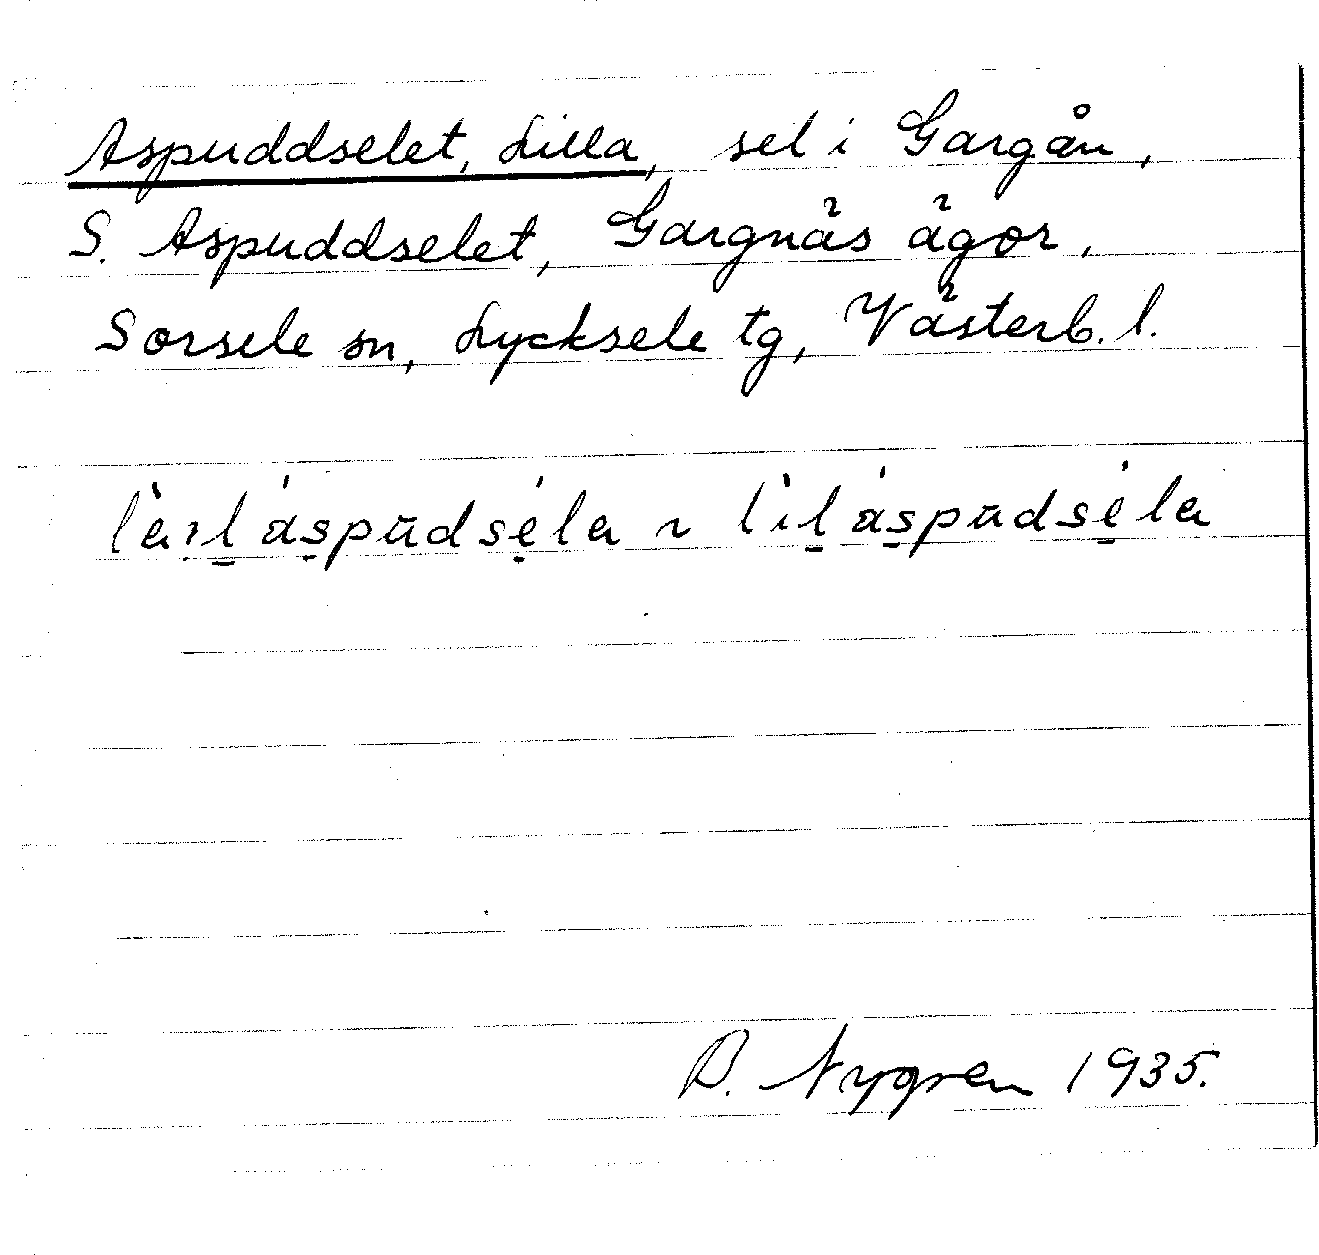 Aspuddselet, Lilla, sel i Gargån,
S. Aspuddselet, Gargnäs ägor,
Sorsele sn, Lycksele tg, Västerb. l.
R. Nygren 1935.